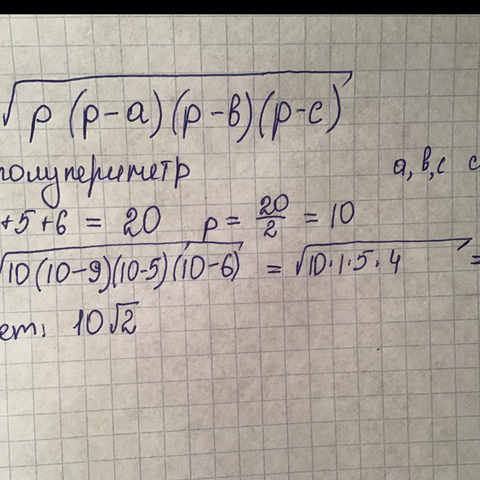 √p(p-a)(p-в)(p-c)
полупериметр a, в, c c
+5+6 = 20 p = 20/2 = 10
√10(10-9)(10-5)(10-6) = √10·1·5·4 =
ет: 10√2